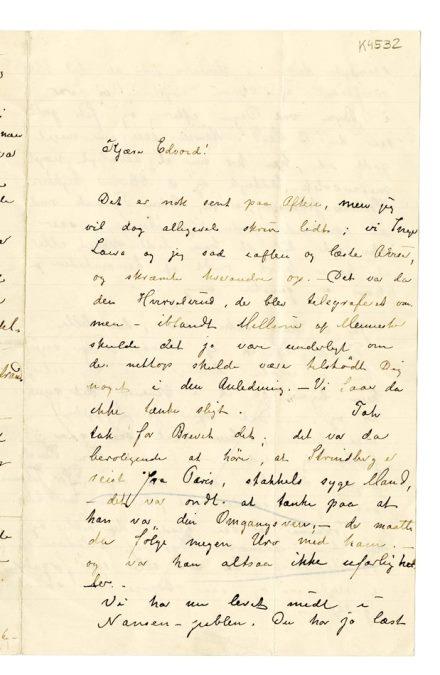 K4532
Kjære Edvard!
Det er nok sent paa Aften, men jeg
vil dog alligevel skrive lidt; vi Inger
Laura og jeg sad iaften og læste Aviser,
og skræmte hverandre op. – Det var da
den Hvirvelvind, de blev telegraferet om
men – iblandt Millioner af Mennesker
skulde det jo være underligt om
de nettop skulde være tilstødt Dig
noget i den Anledning. – Vi faar da
ikke tænke sligt. Tak
tak for Brevet det, det var da
beroligende at høre, at Strindberg er
reist fra Paris, stakkels syge Mand,
– det var ondt at tænke paa at
han var din Omgangsven, – de maatte
da følge megen Uro med ham, –
og var han altsaa ikke ufarlig heller. –
Vi har nu levet midt i
Nansen-jubelen. Du har jo læst